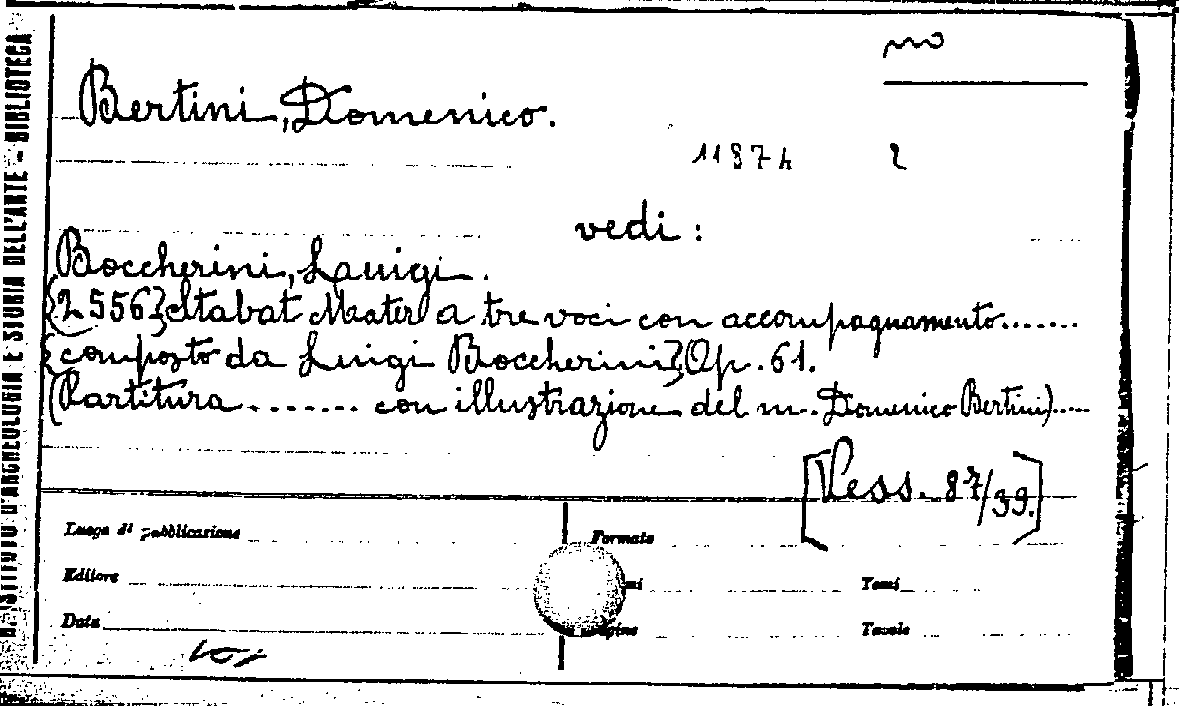 R. ISTITUTO D'ARCHEOLOGIA E STORIA DELL'ARTE - BIBLIOTECA
mo
Bertini, Domenico.
11874 2
vedi :
Boccherini, Luigi.
{2556} Stabat Mater a tre voci con accompagnamento.......
{composto da Luigi Boccherini} Op. 61.
(Partitura ....... con illustrazione del m. Domenico Bertini).....
[Vess. 87/39.]
Luogo di pubblicazione
Formato
Editore
Tomi
Data
Pagine
Tavole